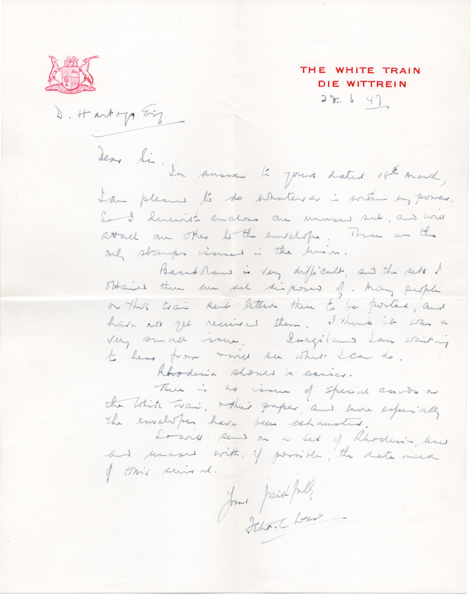 THE WHITE TRAIN
DIE WITTREIN
28. 3 47
D. Hartog Esq
Dear Sir.
In answer to yours dated 18th March,
I am pleased to do whatever is within my power.
So I herewith enclose one unused set, and will
attach one other to the envelope. These are the
only stamps issued in the Union.
Basutoland is very difficult, and the sets I
obtained there are all disposed of. Many people
on this train sent letters there to be posted, and
have not yet received them. I think it was a
very small issue. Swaziland I am waiting
to hear from & will see what I can do.
Rhodesia should be easier.
There is no issue of special cards on
the White Train, & this paper, and more especially
the envelopes have been exhausted.
So will send on a set of Rhodesia, used
and unused with, if possible, the date mark
of
Yours faithfully